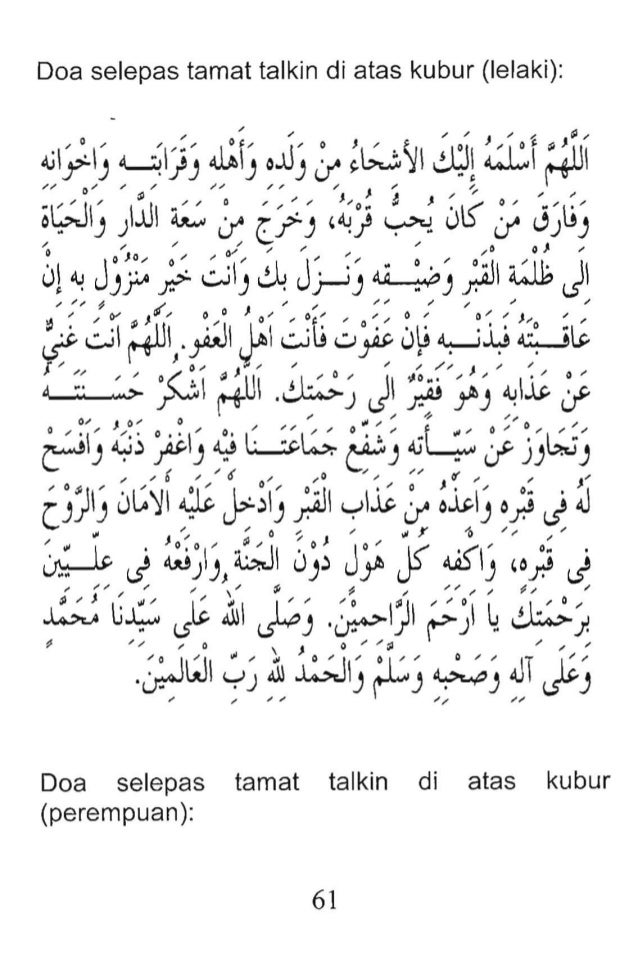 Doa selepas tamat talkin di atas kubur (lelaki):
اَللَّهُمَّ أَسْلَمَهُ إِلَيْكَ الأَشِحَاءُ مِنْ وَلَدِهِ وَأَهْلِهِ وَقَرَابَتِــهِ وَاخْوَانِهِ
وَفَارَقَ مَنْ كَانَ يُحِبُّ قُرْبَهُ، وَخَرَجَ مِنْ سَعَةِ الدَّارِ وَالْحَيَاةِ
اِلَى ظُلْمَةِ الْقَبْرِ وَضِيْــقِهِ وَنَــزَلَ بِكَ وَاَنْتَ خَيْرُ مَنْزُوْلٍ بِهِ اِنْ
عَاقَــبْتَهُ فَبِذَنْــبِهِ فَاِنْ عَفَوْتَ فَأَنْتَ اَهْلُ الْعَفْوِ. اَللَّهُمَّ اَنْتَ غَنِيٌّ
عَنْ عَذَابِهِ وَهُوَ فَقِيْرٌ اِلَى رَحْمَتِكَ. اَللَّهُمَّ اَشْكُرْ حَسَــنَتَــهُ
وَتَجَاوَزْ عَنْ سَيِّــأَتِهِ وَشَفِّعْ جَمَاعَتَــنَا فِيْهِ وَاغْفِرْ ذَنْبَهُ وَافْسَحْ
لَهُ فِى قَبْرِهِ وَاَعِذْهُ مِنْ عَذَابِ الْقَبْرِ وَاَدْخِلْ عَلَيْهِ اْلاَمَانَ وَالرَّوْحَ
فِى قَبْرِهِ، وَاكْفِهِ كُلَّ هَوْلٍ دُوْنَ الْجَنَّةِ وَارْفَعْهُ فِى عِلِّــيِّيْنَ
بِرَحْمَتِكَ يَا اَرْحَمَ الرَّاحِمِيْنَ. وَصَلَّى اللهُ عَلَى سَيِّدِنَا مُحَمَّدٍ
وَعَلَى آلِهِ وَصَحْبِهِ وَسَلَّمْ وَالْحَمْدُ لِلهِ رَبِّ الْعَالَمِيْنَ.
Doa selepas tamat talkin di atas kubur
(perempuan):
61